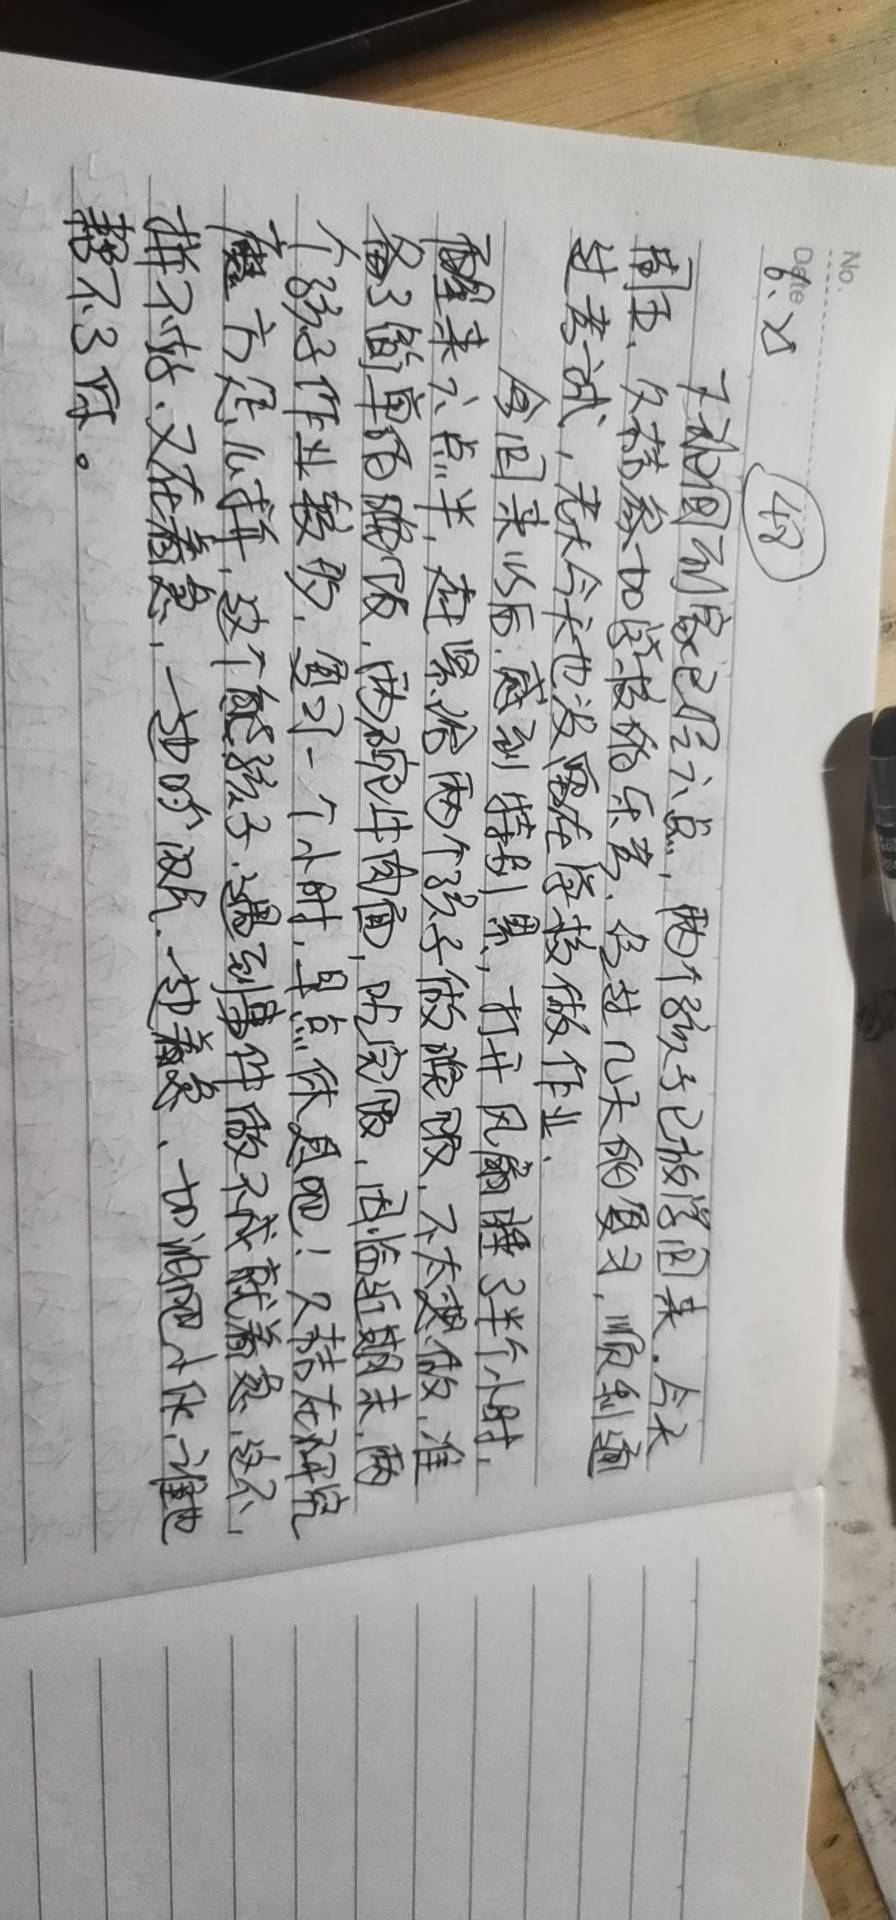 No.
Date
6.
48
下班回到家已经六点，两个孩子已放学回来.今天
周五、久 参加学校的乐考、经过几天的复习，顺利通
过考试，老大今天也没留在学校做作业.
今回来以后.感到特别累，打开风扇睡了半个小时，
醒来六点半，赶紧给两个孩子做晚饭，不太 做，准
备了简单的晚饭，两碗牛肉面，吃完饭，因临近期末，两
个孩子作业较多，复习一个小时，早点休息吧！久 在研究
魔方怎么拼，这个熊孩子.遇到事件做不成就着急，这不，
拼不好、又在着急，一边 ，一边着急、加油吧小伙，谁也
帮不了你。